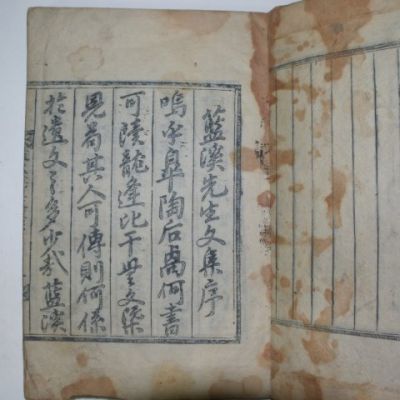 籃溪先生文集序
嗚乎皐陶后禼何書
可讀龍逄比干無文槩
見苟其人可傳則何係
於遺文之多少哉籃溪